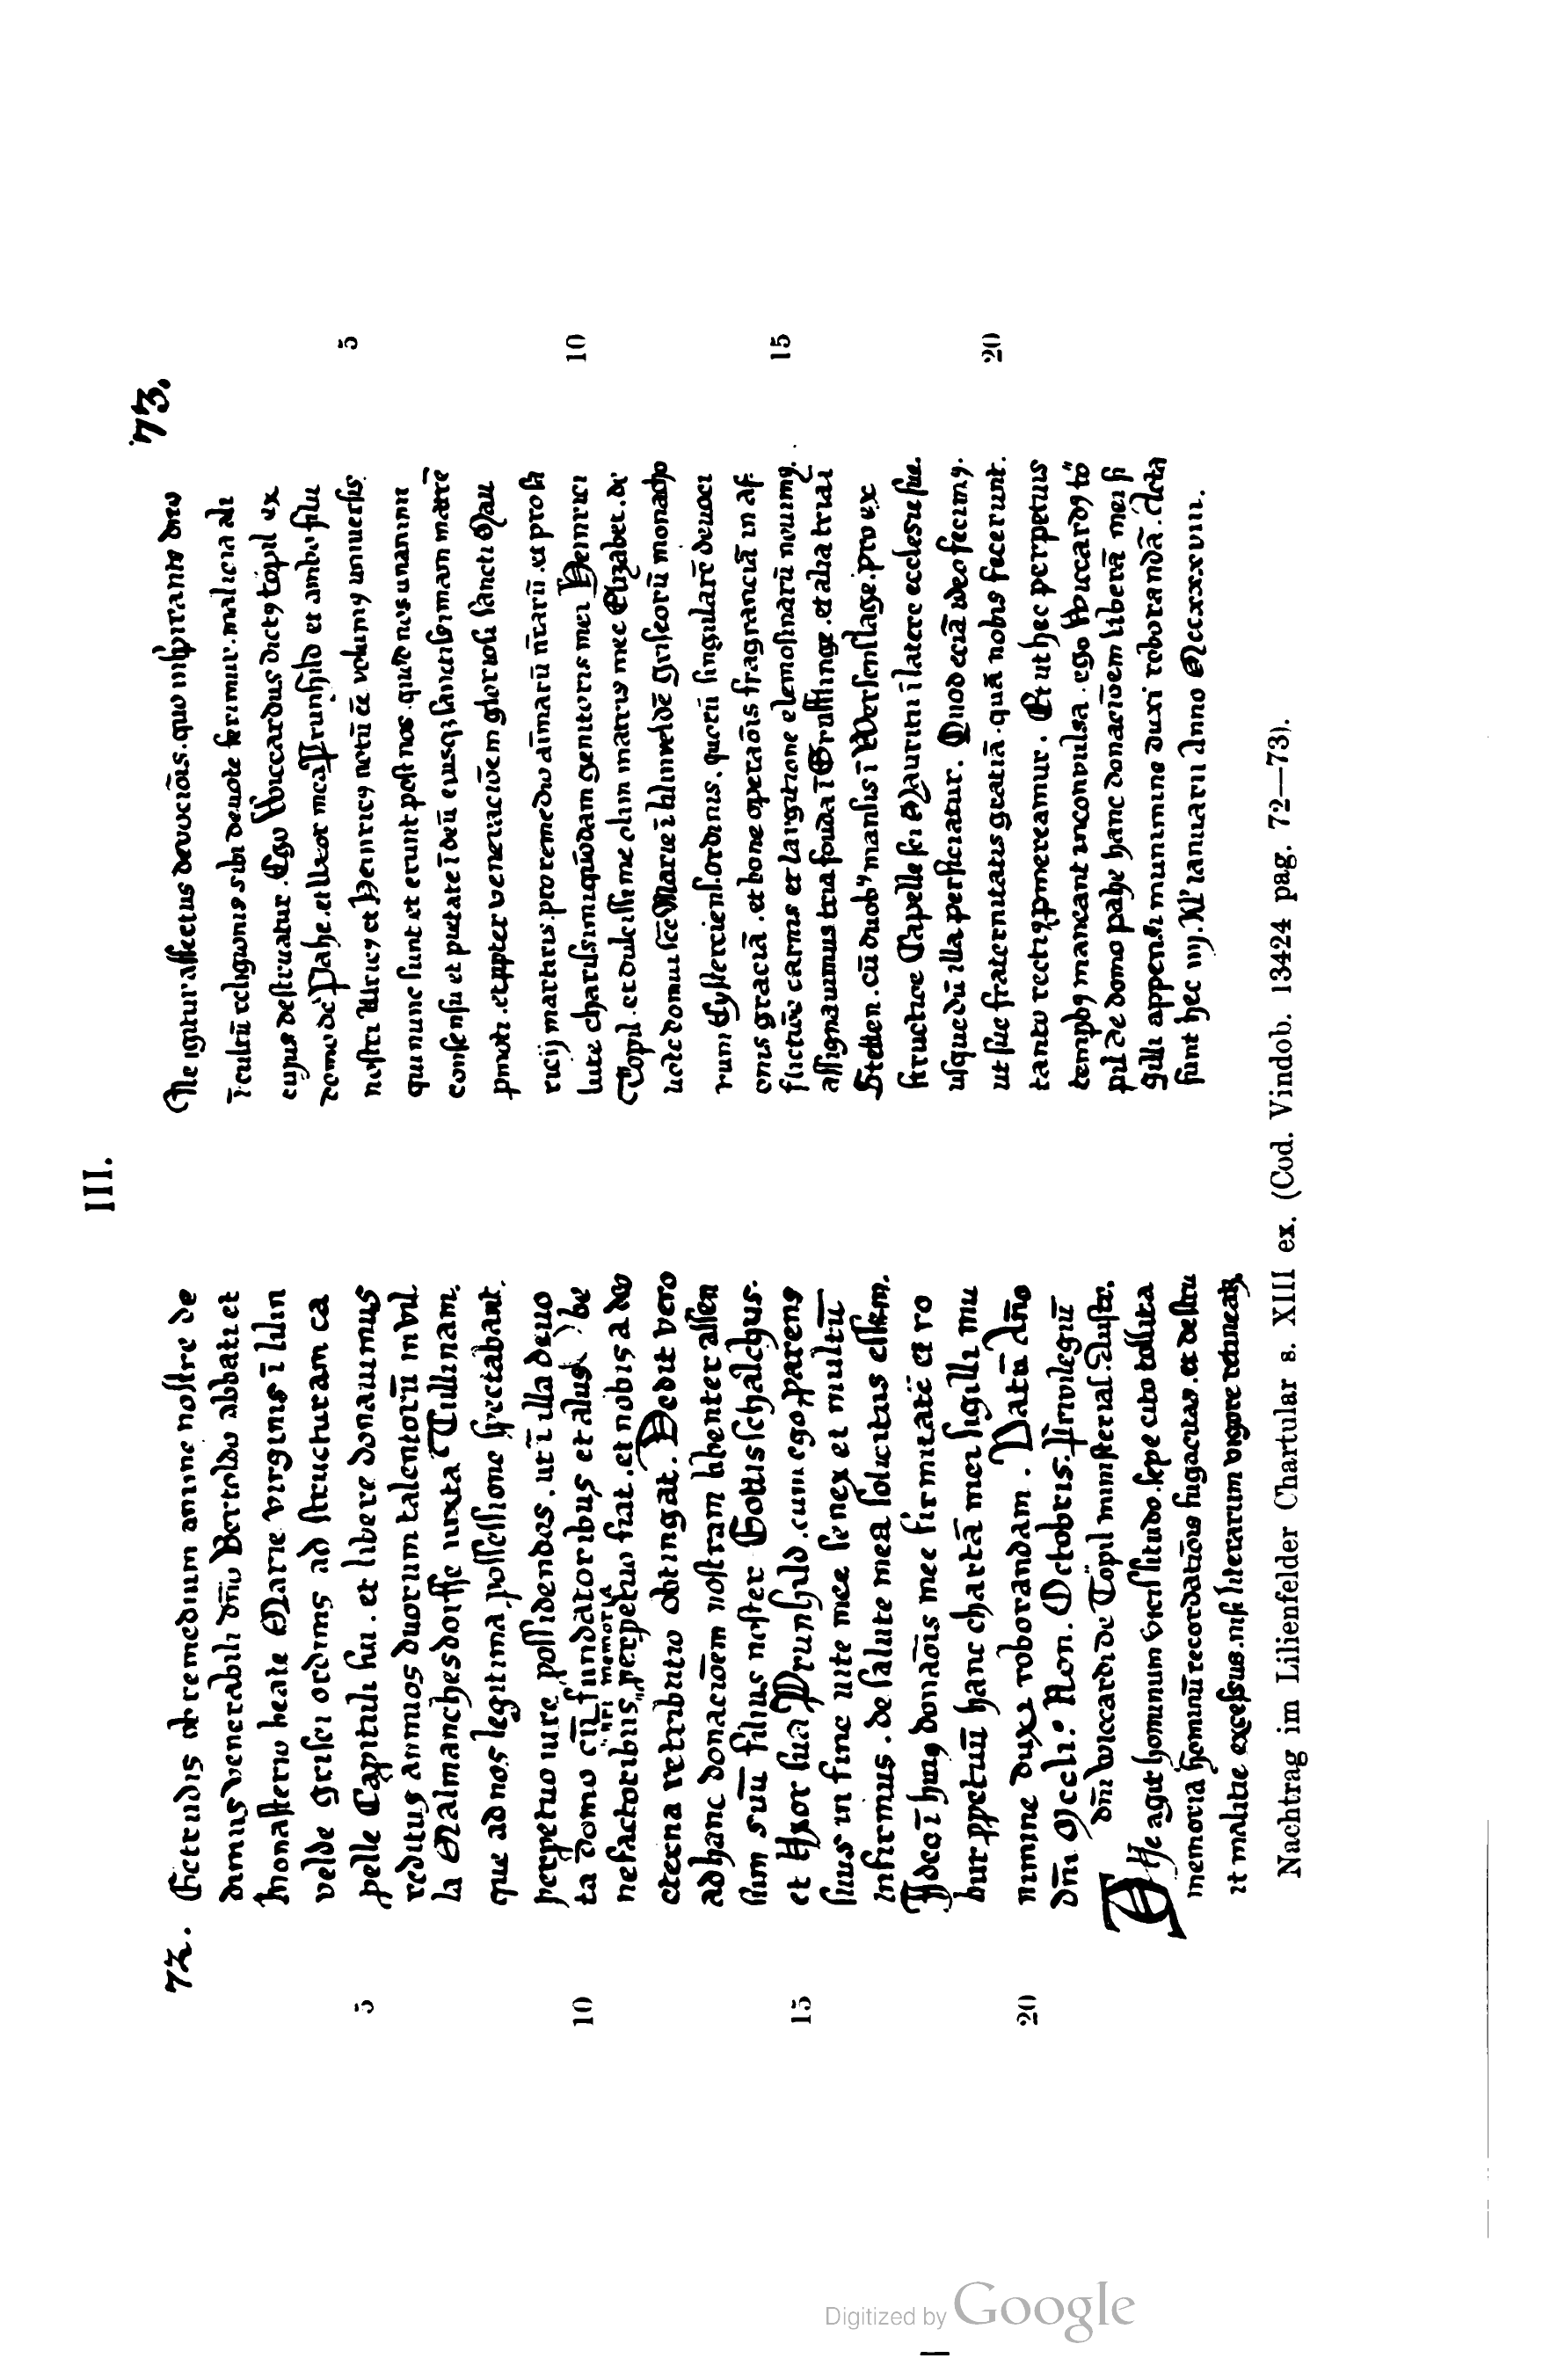 III.
72.
Gertrudis ob remedium anime nostre de
dimus venerabili dn̄o Bertoldo abbati et
monasterio beate Marie virginis ī lilin
velde grisei ordinis ad structuram ca
pelle Capituli sui . et libere donauimus
5
reditus annuos duorum talentorū in vil
la Malmanchesdorffe iuxta Tullinam.
que ad nos legitima possessione spectabant.
perpetuo iure possidendos . ut ī illa deuo
ta domo cū fundatoribus et aliis be
10
nr̄i memoria
nefactoribus perpetuo fiat . et nobis a deo
eterna retributio obtingat . Dedit vero
ad hanc donacioēm nostram libenter assen
sum suū filius noster Gottischalchus .
et Uxor sua Prunhild . cum ego parens
15
suus in fine uite mee senex et multū
infirmus . de salute mea solicitus essem .
Idcco ī huiꝯ donaōis mee firmitatē et ro
bur ppetuū hanc chartā mei sigilli mu
nimine duxi roborandam . Datū Ann̄o
20
dn̄i Mccli° Non . Octobris . Priuilegiū
dn̄i Wiccardi de Töpil ministerial . Austr̄.
THe agit hominum vicissitudo . sepe cito tollitᷓ a
memoria hominū recordatiōis fugacitas . et destru
it malitie excessus . nisi literarum vigore retineatᷓ
73.
Ne igitur affectus deuociōis . quo inspirante deo
ī cultū religionis sibi deuote ferimur . malicia ali
cuius destruatur . Ego Wiccardus dictꝯ Töpil ex
domo de Pahe . et Uxor mea Prunhild et ambo filii
nostri Ulricꝯ et Heinricꝯ notū eē volumꝯ uniuersis .
5
qui nunc sunt et erunt post nos . quod nos unanimi
consensu et puritate ī deū eiusqꝫ sanctissimam matrē
pmoti . et ppter veneraciōem gloriosi sancti Mau
ricij martiris . pro remedio aīmarū nr̄arū . et pro sa
lute charissimi quōdam genitoris mei Heinrici
10
Topil . et dulcissime olim matris mee Elizabet . de
uote domui sc̄e Marie ī liliinvelde griseorū monacho
rum Cysterciensͣ . ordinis . quorū singularē deuoci
onis graciā . et bone operaōis fragranciā in af
flictiōe carnis et largitione elemosinarū nouimꝯ .
15
assignauimus tria feuda ī Grusslinge . et alia tria ī
Stetten . cū duobꝯ mansis ī Wersenslage . pro ex
structioe Capelle sci Mauritii ī latere ecclesie sue .
usque dū illa perficiatur . Quod eciā ideo fecimꝯ .
ut sue fraternitatis gratiā . quā nobis fecerunt .
20
tanto rectiꝯ pmereamur . Et ut hec perpetuis
tempbꝯ maneant inconuulsa . ego Wiccardꝯ tö
pil de domo pahe hanc donaciōem liberā mei si
gilli appensi munimine duxi roborandā . Acta
sunt hec iiij . Kl' ianuarii Anno Mccxxxviii .
Nachtrag im Lilienfelder Chartular s. XIII ex. (Cod. Vindob. 13424 pag. 72—73).
Digitized by Google